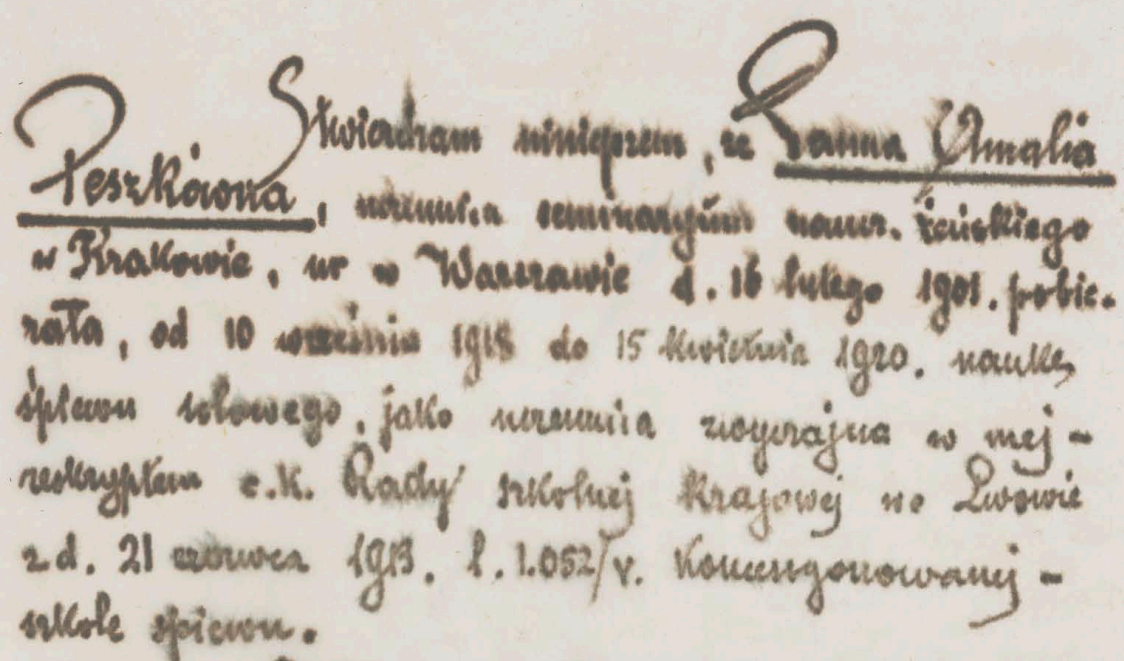 Stwierdzam niniejszem, że Panna Amalia
Peszkówna, uczennica seminaryum naucz. żeńskiego
w Krakowie, ur w Warszawie d. 16 lutego 1901. pobie-
rała, od 10 września 1918 do 15 kwietnia 1920. naukę
śpiewu solowego, jako uczennica zwyczajna w mej -
reskryptem c.k. Rady szkolnej Krajowej we Lwowie
z d. 21 czerwca 1913. l. 1.052/V. Koncesyonowanej -
szkole śpiewu.